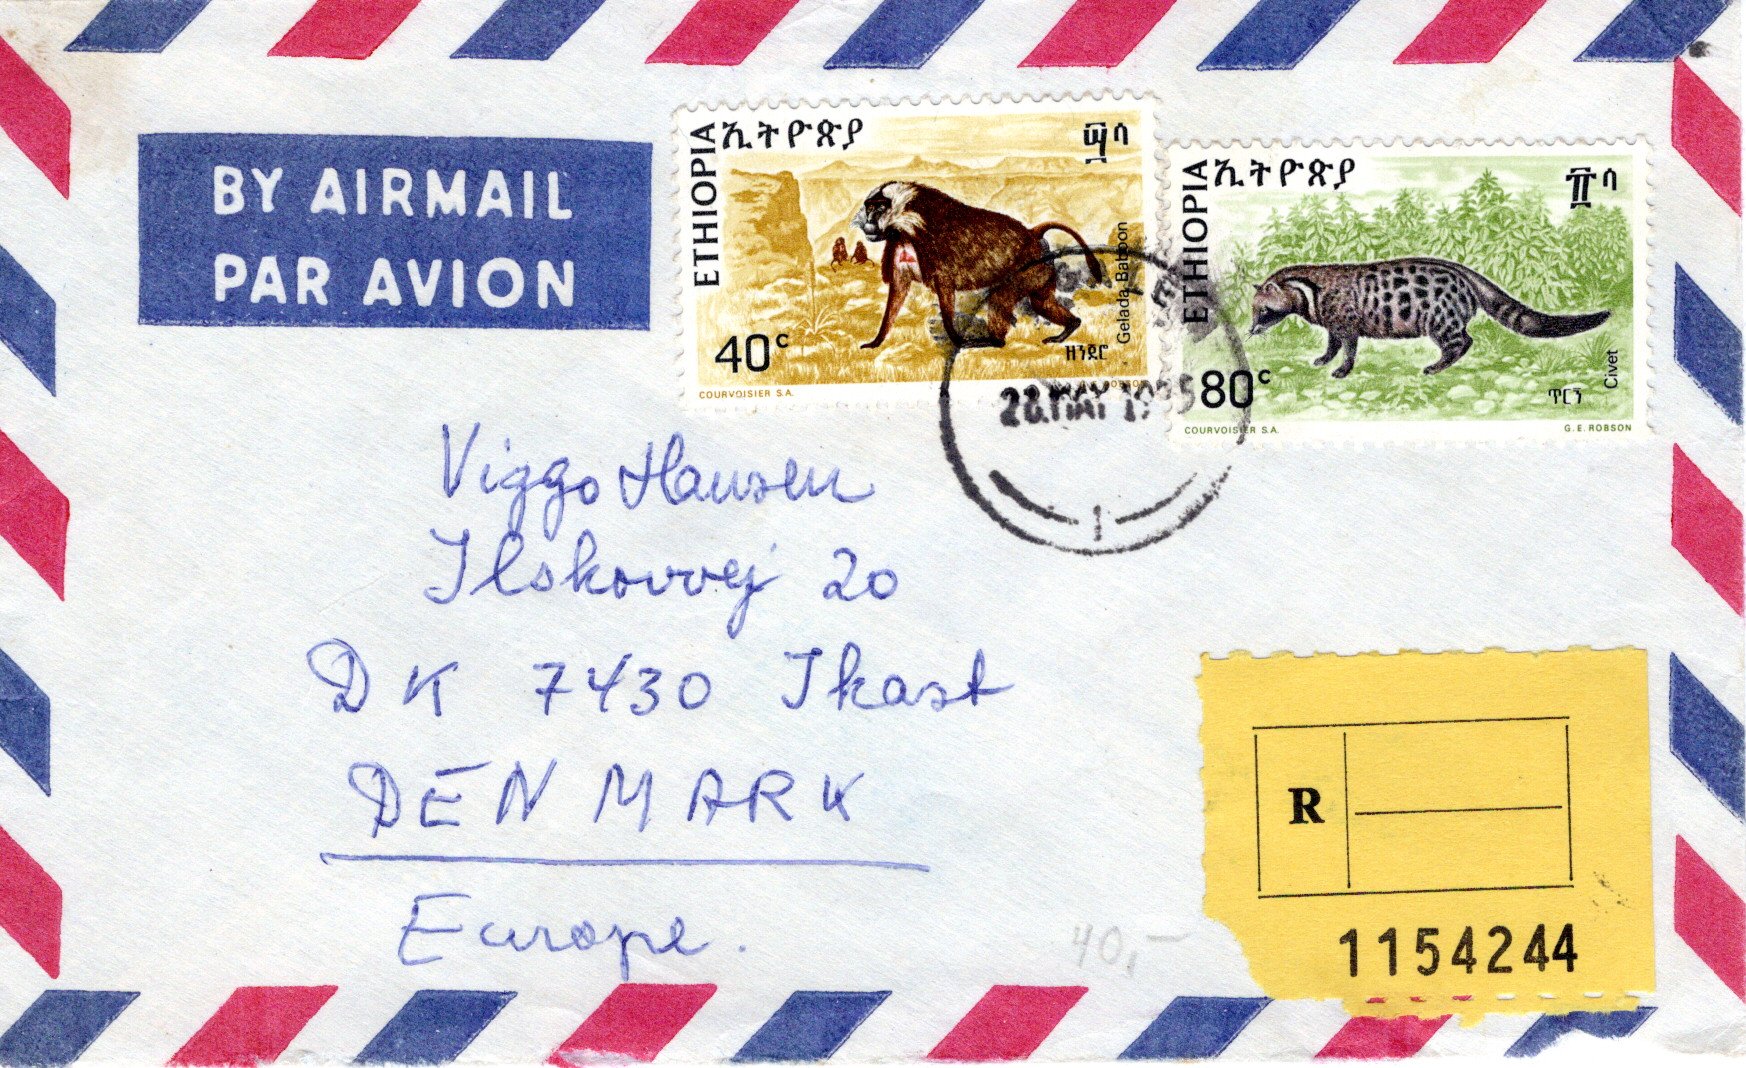 BY AIRMAIL
PAR AVION
ETHIOPIA
ኢትዮጵያ
፵ ሳ
40c
Gelada Baboon
ዝንጀሮ
COURVOISIER S.A.
ROBSON
ETHIOPIA
ኢትዮጵያ
፹ ሳ
80c
Civet
ጥርኝ
COURVOISIER S.A.
G.E. ROBSON
28.MAY 1995
1
Viggo Hansen
Ilskovvej 20
DK 7430 Ikast
DENMARK
Europe.
40,-
R
1154244